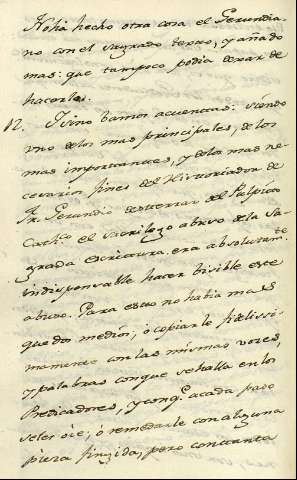 No há hecho otra cosa el Gerundia-
no con el sagrado texto, y añado
mas: que tampoco podia dexar de
hacerlo.
12. Y sino bamos acuentas: siendo
uno delos mas principales, delos
mas importantes, y delos mas ne-
cesarios fines del Historiador de
Fr. Gerundio desterrar del Pulpito
Cath.co el sacrilego abuso dela Sa-
grada escritura, era absolutam.te
indispensable hacer bisible este
abuso. Para esto no habia mas
que dos medios; ó copiarle fidelissi-
mamente con las mismas voces,
y palabras con que se halla en los
Predicadores, y con q.e acada paso
seles óie; ó remedarle con alguna
pieza finjida, pero con tanta